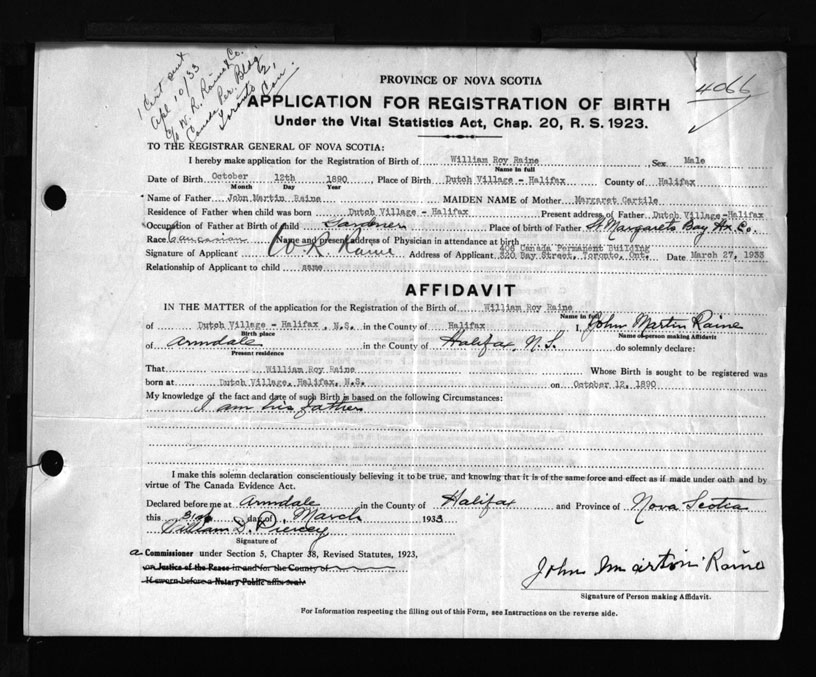 PROVINCE OF NOVA SCOTIA
4066
1 Cert sent
Apl 10/33
c/o W. R. Raine & Co.
Canada Per. Bldg.
Toronto 2,
Can.
APPLICATION FOR REGISTRATION OF BIRTH
Under the Vital Statistics Act, Chap. 20, R. S. 1923.
TO THE REGISTRAR GENERAL OF NOVA SCOTIA:
I hereby make application for the Registration of Birth of William Roy Raine Sex Male
Name in full
Date of Birth October 12th 1890 Place of Birth Dutch Village - Halifax County of Halifax
Month Day Year
Name of Father John Martin Raine MAIDEN NAME of Mother Margaret Cartile
Residence of Father when child was born Dutch Village - Halifax Present address of Father Dutch Village-Halifax
Occupation of Father at Birth of child Gardener Place of birth of Father St. Margarets Bay Hx. Co.
Race Caucasian Name and present address of Physician in attendance at birth
406 Canada Permanent Building
Signature of Applicant W. R. Raine Address of Applicant 320 Bay Street, Toronto, Ont. Date March 27, 1933
Relationship of Applicant to child same
AFFIDAVIT
IN THE MATTER of the application for the Registration of the Birth of William Roy Raine
Name in full
of Dutch Village - Halifax, N.S. in the County of Halifax I, John Martin Raine
Birth place Name of person making Affidavit
of Armdale in the County of Halifax, N.S. do solemnly declare:
Present residence
That William Roy Raine Whose Birth is sought to be registered was
born at Dutch Village, Halifax, N.S. on October 12, 1890
My knowledge of the fact and date of such Birth is based on the following Circumstances:
I am his father
I make this solemn declaration conscientiously believing it to be true, and knowing that it is of the same force and effect as if made under oath and by
virtue of The Canada Evidence Act.
Declared before me at Armdale in the County of Halifax and Province of Nova Scotia
this 31st day of March 1933
William D. Piercey
Signature of
a Commissioner under Section 5, Chapter 38, Revised Statutes, 1923,
or Justice of the Peace in and for the County of
If sworn before a Notary Public affix seal
John Martin Raine
Signature of Person making Affidavit.
For Information respecting the filling out of this Form, see Instructions on the reverse side.